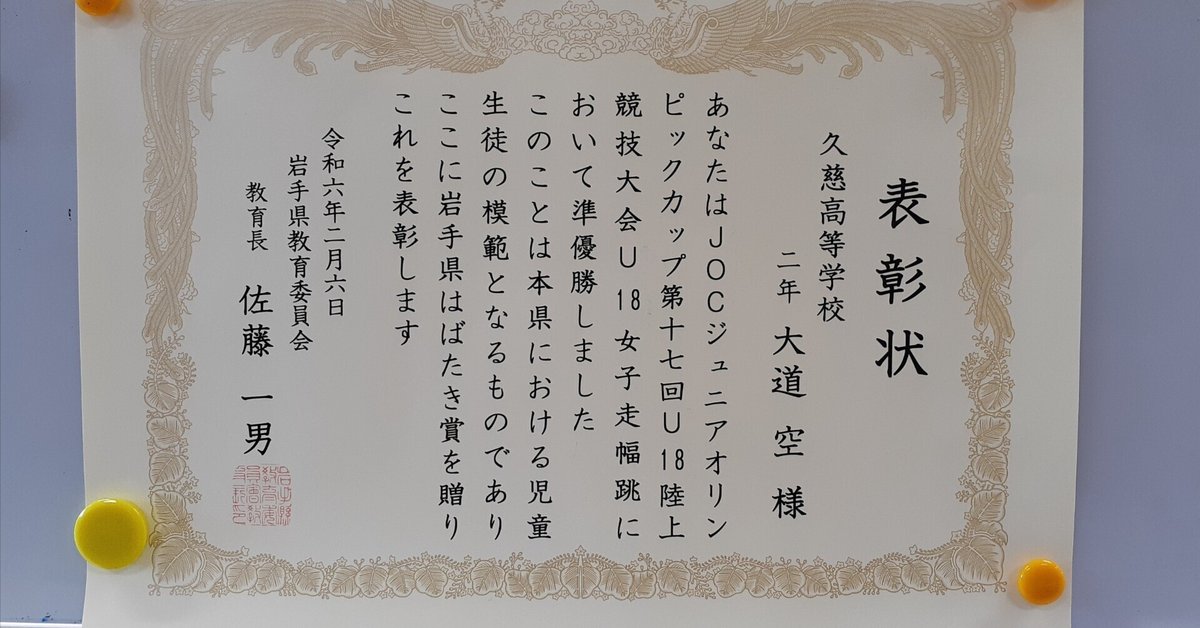 表彰状
久慈高等学校
二年 大道 空 様
あなたはJOCジュニアオリン
ピックカップ第十七回U18陸上
競技大会U18女子走幅跳に
おいて準優勝しました
このことは本県における児童
生徒の模範となるものであり
ここに岩手県はばたき賞を贈り
これを表彰します
令和六年二月六日
岩手県教育委員会
教育長 佐藤 一男